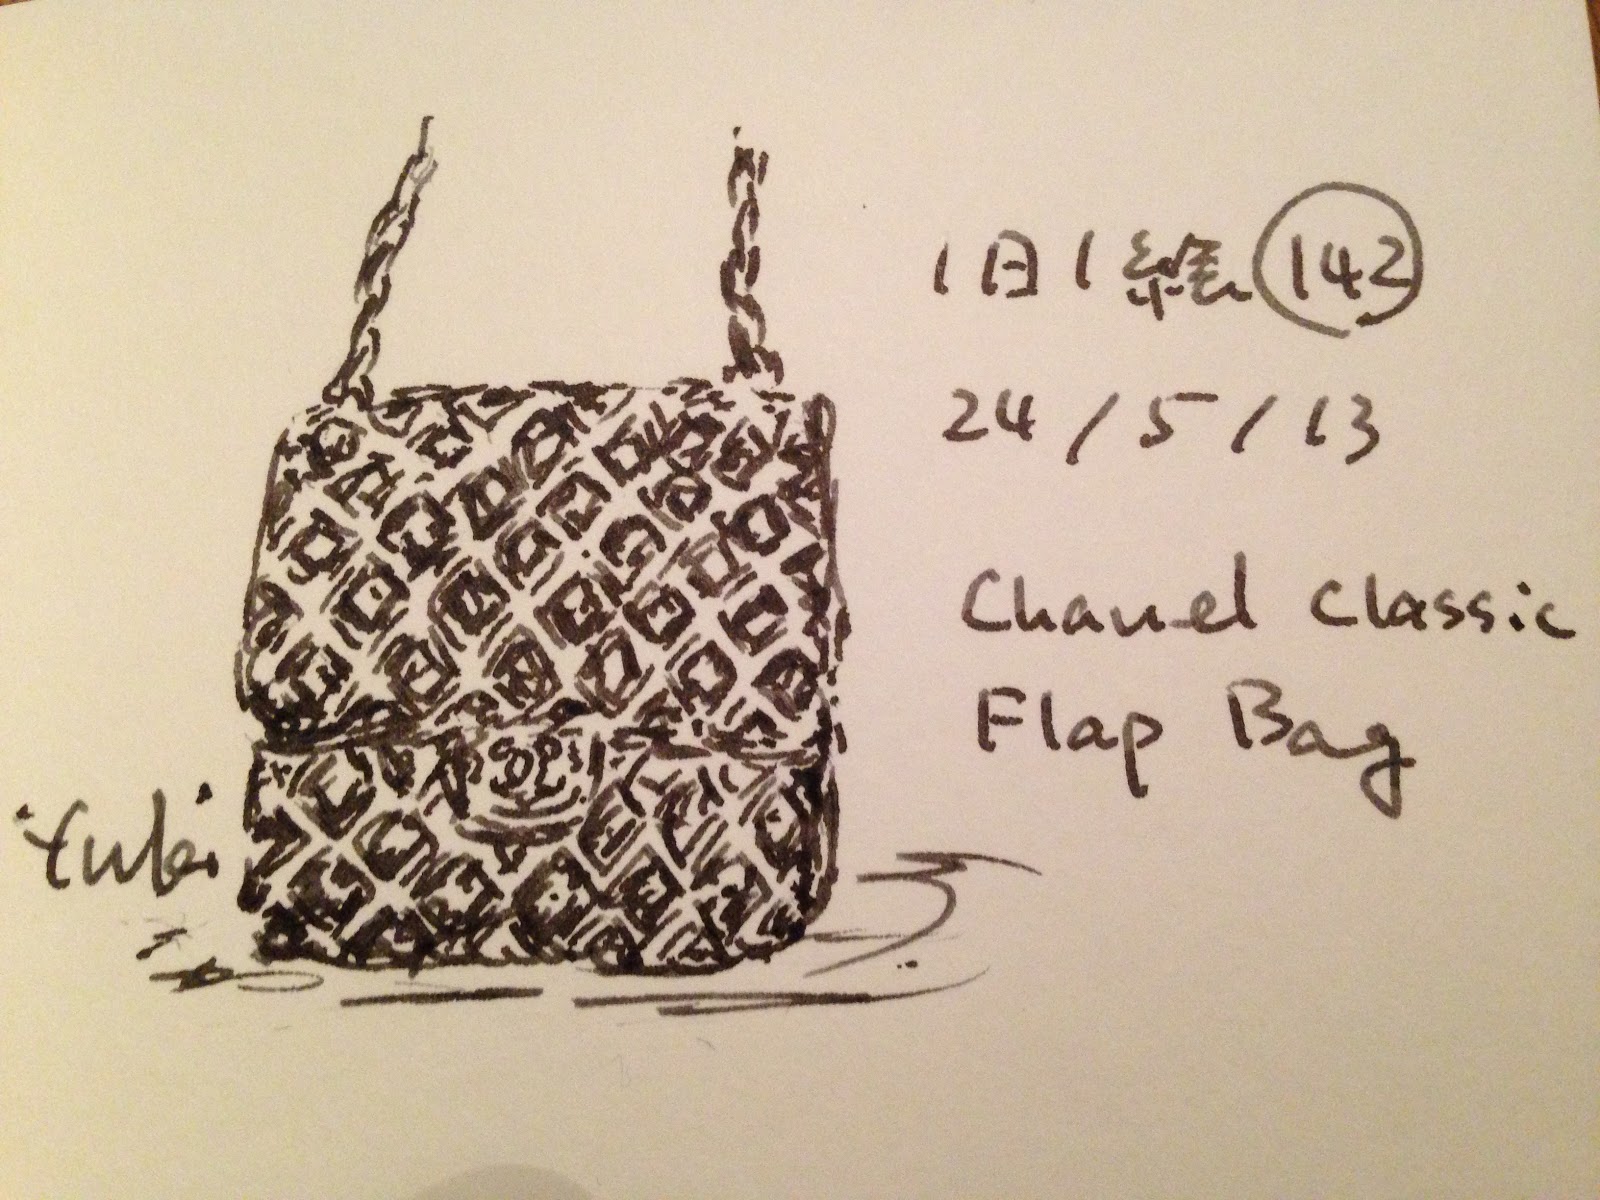 1日1絵 142
24/5/13
Chanel Classic
Flap Bag
Yuki